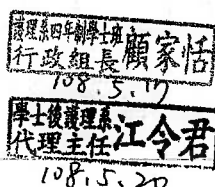 護理系四年制學士班
行政組長 顧家恬
108.5.17
學士後護理系
代理主任 江令君
108.5.20